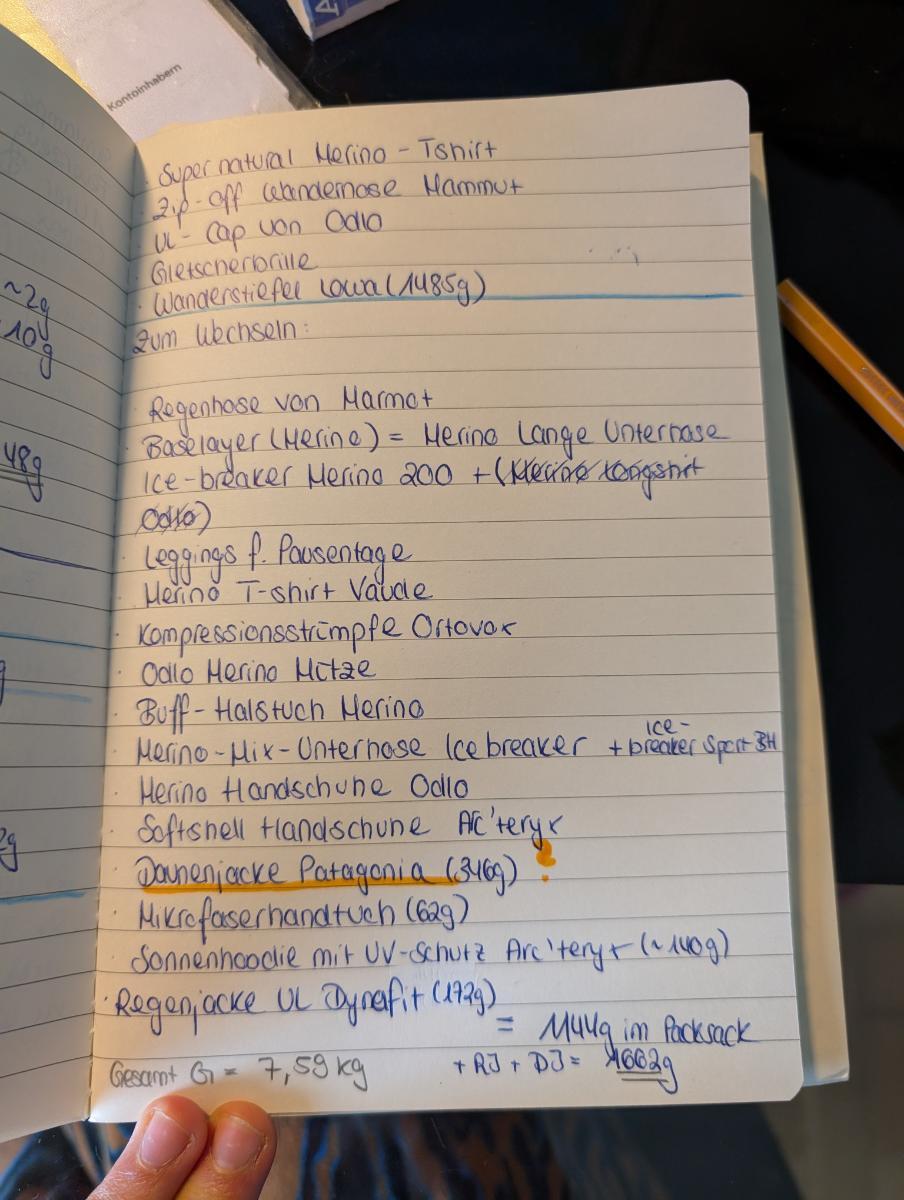 Kontoinhabern
· Super natural Merino - Tshirt
· Zip-off Wanderhose Mammut
· UL - Cap von Odlo
· Gletscherbrille
· Wanderstiefel Lowa (1485g)
~2g
10g
Zum Wechseln:
Regenhose von Marmot
Baselayer (Merino) = Merino Lange Unterhose
48g
Ice-breaker Merino 200 + (Merino Longshirt
Odlo)
· Leggings f. Pausentage
· Merino T-shirt Vaude
· Kompressionsstrümpfe Ortovox
· Odlo Merino Mütze
· Buff - Halstuch Merino
· Merino-Mix-Unterhose Icebreaker + Ice-
breaker Sport BH
· Merino Handschuhe Odlo
· Softshell Handschuhe Arc'teryx
· Daunenjacke Patagonia (346g) ?
· Mikrofaserhandtuch (62g)
· Sonnenhoodie mit UV-Schutz Arc'teryx (~140g)
· Regenjacke UL Dynafit (172g)
= 1144g im Packsack
Gesamt G = 7,59 kg + RJ + DJ = 1662g